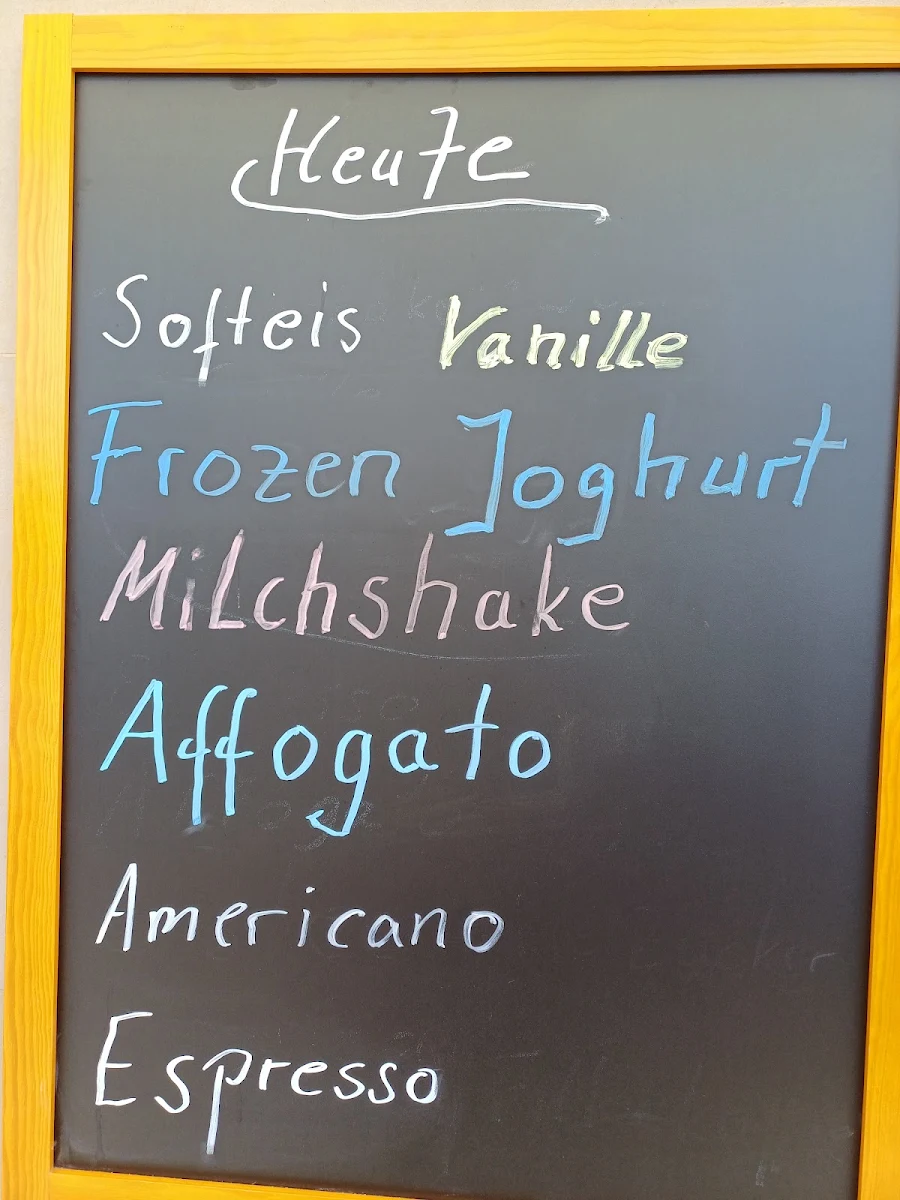 Heute
Softeis Vanille
Frozen Joghurt
Milchshake
Affogato
Americano
Espresso